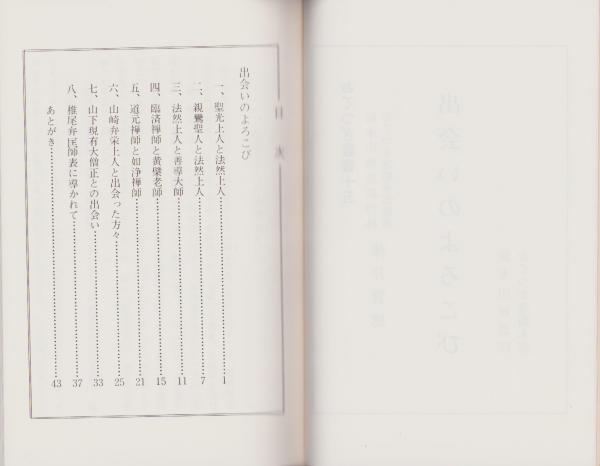 目次
出会いのよろこび
一、聖光上人と法然上人……………………1
二、親鸞聖人と法然上人……………………7
三、法然上人と善導大師……………………11
四、臨済禅師と黄檗老師……………………15
五、道元禅師と如浄禅師……………………21
六、山崎弁栄上人と出会った方々……………………25
七、山下現有大僧正との出会い……………………33
八、椎尾弁匡師表に導かれて……………………37
あとがき……………………43
出会いのよろこび